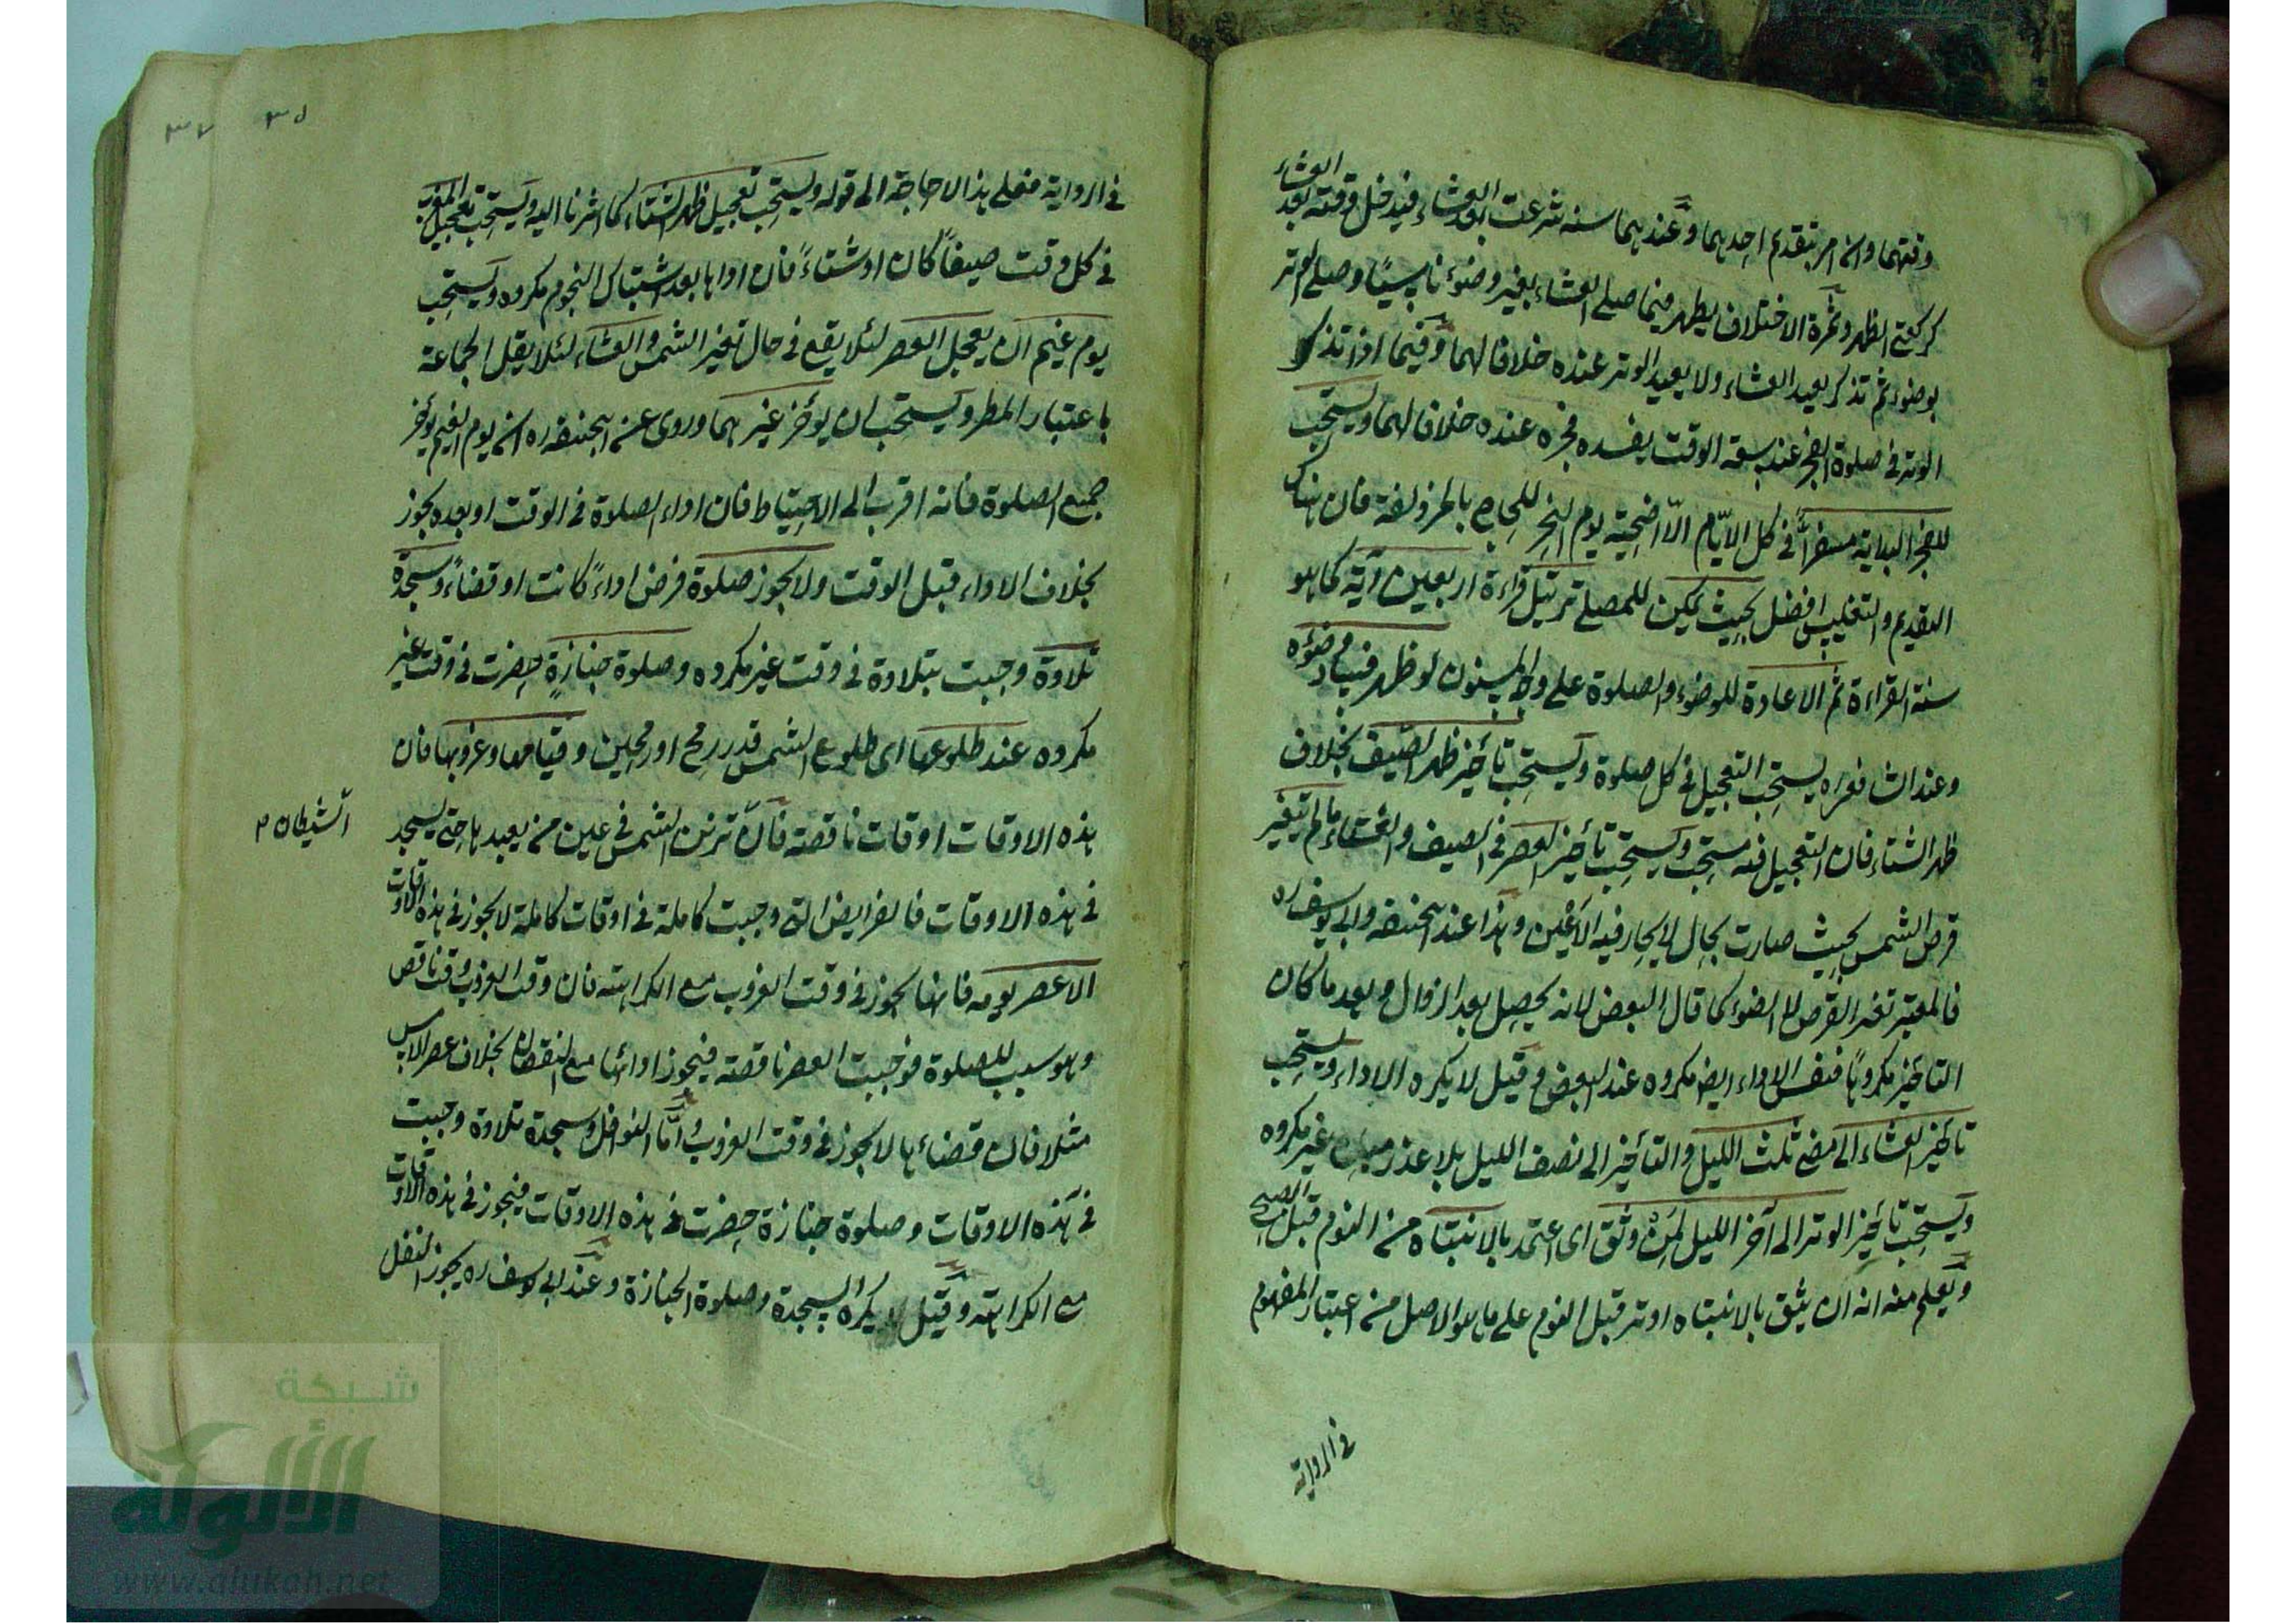 وقتهما وانه امر بتقديم احديهما وعندهما سنة شرعت بعد العشاء فيدخل وقته بعد العشاء
كركعتي الظهر وثمرة الاختلاف يظهر فيما صلى العشاء بغير وضوء ناسيا وصلى الوتر
بوضوء ثم تذكر يعيد العشاء ولا يعيد الوتر عنده خلافا لهما وفيما اذا تذكر
الوتر في صلوة الفجر عند سعة الوقت يفسد فجره عنده خلافا لهما ويستحب
للفجر البداية مسفرا في كل الايام الا اضحية يوم النحر للحاج بالمزدلفة فان هناك
التقديم والتغليس افضل بحيث يمكن للمصلي ترتيل قراءة اربعين آية كما هو
سنة القراءة ثم الاعادة للوضوء والصلوة على وجه المسنون لو ظهر فساد وضوئه
وعند الشافعي ره يستحب التعجيل في كل صلوة ويستحب تأخير ظهر الصيف بخلاف
ظهر الشتاء فان التعجيل فيه مستحب ويستحب تأخير العصر في الصيف والشتاء ما لم يتغير
قرص الشمس بحيث صارت بحال لا يحار فيه الاعين وهذا عند ابيحنيفة وابي يوسف ره
فالمعتبر تغير القرص لا الضوء كما قال البعض لانه يحصل بعد الزوال وبعد ما كان
التأخير مكروها فنفس الاداء ايض مكروه عند البعض وقيل لا يكره الاداء ويستحب
تأخير العشاء الى مضي ثلث الليل والتأخير الى نصف الليل بلا عذر مباح غير مكروه
ويستحب تأخير الوتر الى آخر الليل لمن وثق اى اعتمد بالانتباه من النوم قبل الصبح
ويعلم منه انه ان يثق بالانتباه اوتر قبل النوم على ما هو الاصل من اعتبار المفهوم
في الرواية
٣٥ ٣٧
في الرواية فعلى هذا لا حاجة الى قوله ويستحب تعجيل ظهر الشتاء كما اشرنا اليه ويستحب تعجيل المغرب
في كل وقت صيفا كان او شتاء فان اداها بعد اشتباك النجوم مكروه ويستحب
يوم غيم ان يعجل العصر لئلا يقع في حال تغير الشمس والعشاء لئلا يقل الجماعة
باعتبار المطر ويستحب ان يؤخر غيرهما وروى عن ابيحنيفة ره انه يوم الغيم يؤخر
جميع الصلوة فانه اقرب الى الاحتياط فان اداء الصلوة في الوقت او بعده يجوز
بخلاف الاداء قبل الوقت ولا يجوز صلوة فرض اداء كانت او قضاء وسجدة
تلاوة وجبت بتلاوة في وقت غير مكروه وصلوة جنازة حضرت في وقت غير
مكروه عند طلوعها اى طلوع الشمس قدر رمح او رمحين وقيامها وغروبها فان
هذه الاوقات اوقات ناقصة فان تزين الشمس في عين من يعبدها حتى يسجد
الشيطان م
في هذه الاوقات فالفرايض التي وجبت كاملة في اوقات كاملة لا يجوز في هذه الاوقات
الا عصر يومه فانها يجوز في وقت الغروب مع الكراهة فان وقت الغروب وقت ناقص
وهو سبب للصلوة فوجبت العصر ناقصة فيجوز ادائها مع النقصان بخلاف عصر الامس
مثلا فان قضاءها لا يجوز في وقت الغروب واما النوافل وسجدة تلاوة وجبت
في هذه الاوقات وصلوة جنازة حضرت في هذه الاوقات فيجوز في هذه الاوقات
مع الكراهة وقيل لا يكره السجدة وصلوة الجنازة وعند ابي يوسف ره يجوز النفل
شبكة
الألوكة
www.alukah.net